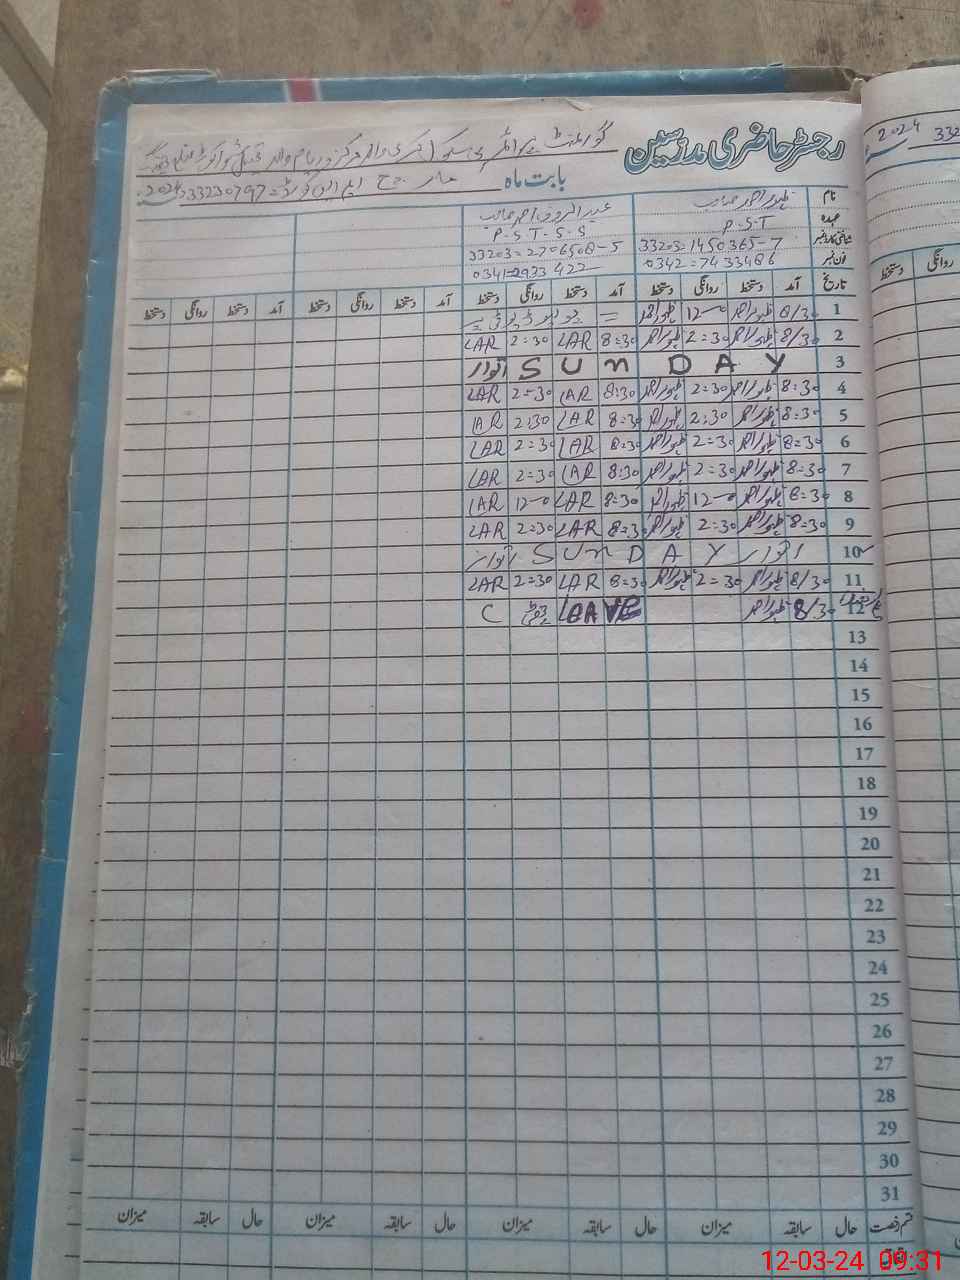 رجسٹر حاضری مدرسین
گورنمنٹ
بابت ماہ مارچ 2024 33230797
نام ظہور احمد صاحب عبدالرؤف احمد صاحب
عہدہ P.S.T P.S.T-S.S
شناختی کارڈ نمبر 33203-1450365-7 33203-2706508-5
فون نمبر 0342-7433486 0341-2933422
تاریخ آمد دستخط روانگی دستخط آمد دستخط روانگی دستخط آمد دستخط روانگی دستخط آمد دستخط روانگی دستخط
1 8/30 ظہور احمد 12-0 ظہور احمد =
2 8/30 ظہور احمد 2:30 ظہور احمد 8:30 LAR 2:30 LAR
3 SUNDAY اتوار
4 8:30 ظہور احمد 2:30 ظہور احمد 8:30 LAR 2:30 LAR
5 8:30 ظہور احمد 2:30 ظہور احمد 8:30 LAR 2:30 LAR
6 8:30 ظہور احمد 2:30 ظہور احمد 8:30 LAR 2:30 LAR
7 8:30 ظہور احمد 2:30 ظہور احمد 8:30 LAR 2:30 LAR
8 8:30 ظہور احمد 12-0 ظہور احمد 8:30 LAR 12-0 LAR
9 8:30 ظہور احمد 2:30 ظہور احمد 8:30 LAR 2:30 LAR
10 اتوار SUNDAY اتوار
11 8/30 ظہور احمد 2=30 ظہور احمد 8=30 LAR 2=30 LAR
12 8/30 ظہور احمد LEAVE C
13
14
15
16
17
18
19
20
21
22
23
24
25
26
27
28
29
30
31
قسم رخصت حال سابقہ میزان حال سابقہ میزان حال سابقہ میزان حال سابقہ میزان
اتفاقیہ
2024 332
روانگی دستخط
12-03-24 09:31